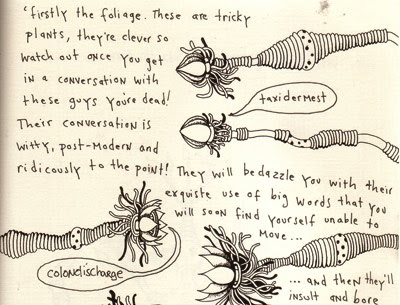 'firstly the foliage. These are tricky
plants, they're clever so
watch out once you get
in a conversation with
these guys you're dead!
Their conversation is
witty, post-Modern and
ridicously to the point!
taxidermest
They will bedazzle you with their
exquiste use of big words that you
will soon find yourself unable to
Move...
colondischarge
... and then they'll
insult and bore